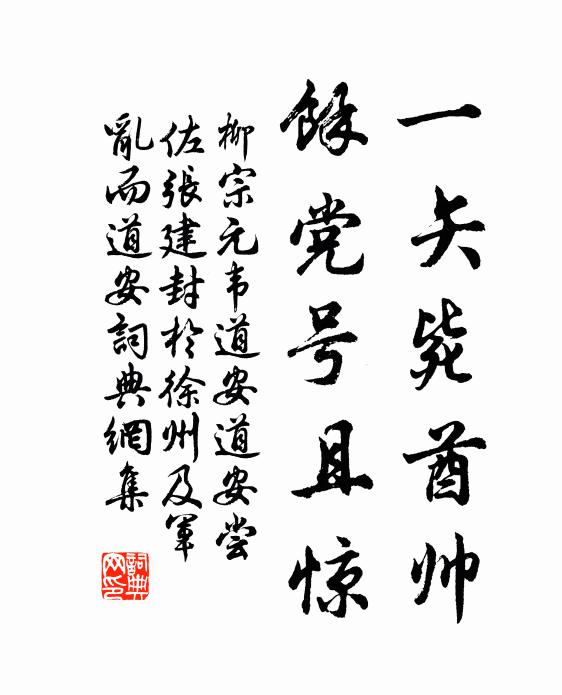 一矢毙酋帅
馀党号且惊
柳宗元韦道安道安尝
佐張建封於徐州及军
亂而道安詞典網集
詞典
网印